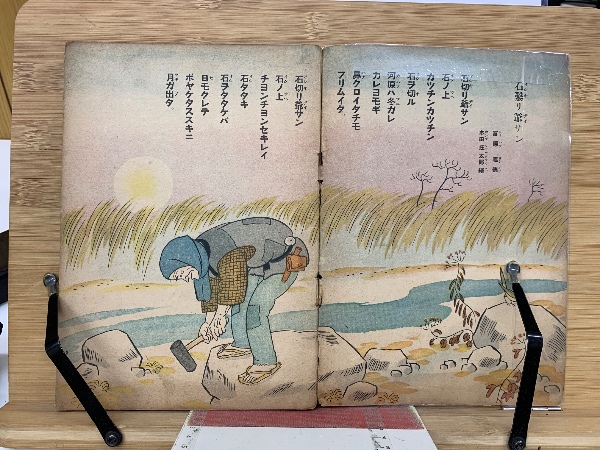 石割り爺サン
本田庄太郎 繪
石切リ爺サン
石ノ上
カツチンカツチン
石ヲ切ル
河原ハ冬ガレ
カレヨモギ
鼻クロイタチモ
フリムイタ
石切リ爺サン
石ノ上
チヨンチヨンセキレイ
石タタキ
石ヲタタケバ
日モクレテ
ボヤケタススキニ
月ガ出タ